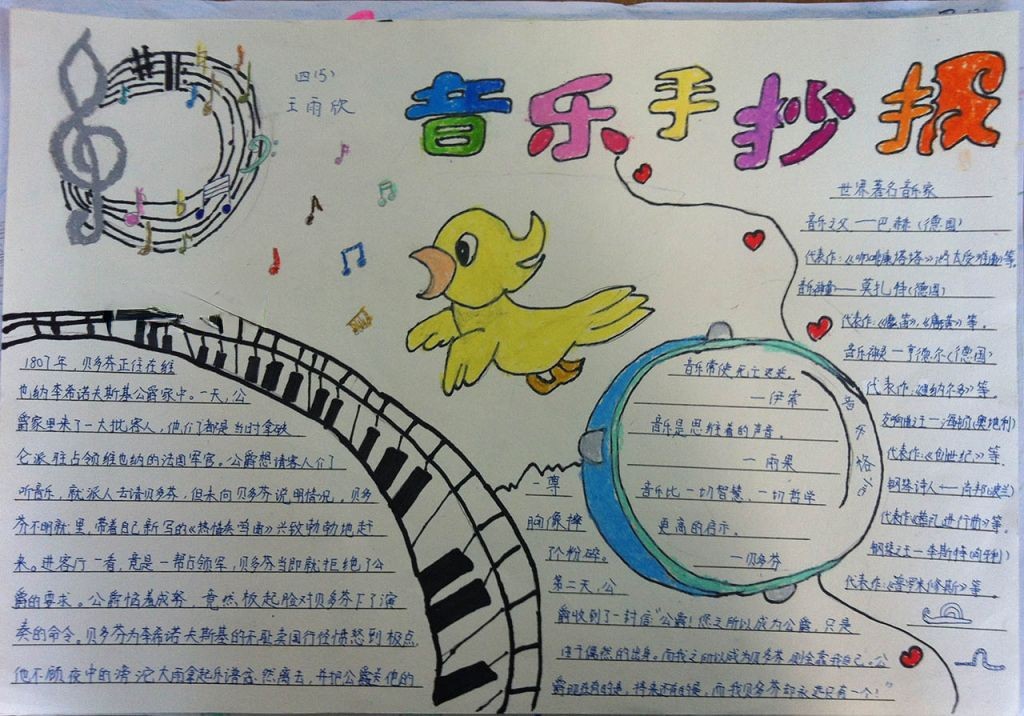 四(5)
王雨欣
音乐手抄报
1807年,贝多芬正住在维
也纳李希诺夫斯基公爵家中。一天,公
爵家里来了一大批客人,他们都是当时拿破
仑派驻占领维也纳的法国军官。公爵想请客人们
听音乐,就派人去请贝多芬,但未向贝多芬说明情况。贝多
芬不明就里,带着自己新写的《热情奏鸣曲》兴致勃勃地赶
来。进客厅一看,竟是一帮占领军,贝多芬当即就拒绝了公
爵的要求。公爵恼羞成怒,竟然板起脸对贝多芬下了演
奏的命令。贝多芬为李希诺夫斯基的无耻卖国行径愤怒到极点
他不顾夜中的滂沱大雨拿起乐谱忿然离去,并把公爵送他的
一尊
胸像摔
了个粉碎。
第二天,公
爵收到了一封信"公爵!您之所以成为公爵,只是
由于偶然的出身。而我之所以成为贝多芬则全靠我自己。公
爵现在有的是,将来还有的是,而我贝多芬却永远只有一个!"
音乐常使死亡迟延。
—伊索
音乐是思维着的声音。
—雨果
音乐比一切智慧、一切哲学
更高的启示。
—贝多芬
音乐
世界著名音乐家
音乐之父—巴赫(德国)
代表作:《
音乐神童—莫扎特(德国)
代表作:《魔笛》,《
》等。
音乐神灵—亨德尔(德国)
代表作:
》等。
交响曲之王—海顿(奥地利)
代表作:《创世纪》等.
钢琴诗人—肖邦(波兰)
代表作《葬礼进行曲》等
钢琴之王—李斯特(匈牙利)
代表作:《普罗米修斯》等